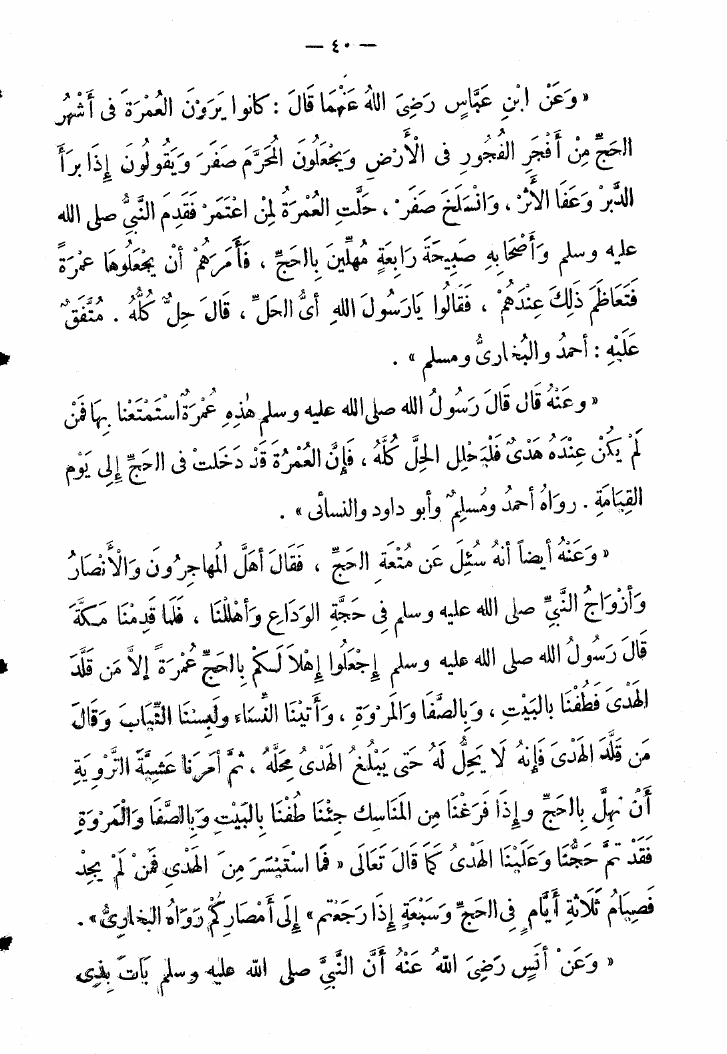 — ٤٠ —
« وَعَنْ ابْنِ عَبَّاسٍ رَضِيَ اللهُ عَنْهُمَا قَالَ : كانوا يَرَوْنَ العُمْرَةَ فى أَشْهُرِ
الحَجِّ مِنْ أَفْجَرِ الفُجُورِ فى الْأَرْضِ وَيَجْعَلُونَ المُحَرَّمَ صَفَرَ وَيَقُولُونَ إِذَا برَأَ
الدَّبَرْ وَعَفَا الأَثَرْ ، وَانْسَلَخَ صَفَرْ ، حَلَّتِ العُمْرَةُ لِمَنْ اعْتَمَرْ فَقَدِمَ النَّبِيُّ صلى الله
عليه وسلم وَأَصْحَابِهِ صَبِيحَةَ رَابِعَةٍ مُهِلِّينَ بِالحَجِّ ، فَأَمَرَهُمْ أَنْ يَجْعَلُوهَا عُمْرَةً
فَتَعَاظَمَ ذَلِكَ عِنْدَهُمْ ، فَقَالُوا يَارَسُولَ اللهِ أىُّ الحَلِّ ، قَالَ حِلٌّ كُلُّهُ . مُتَّفَقٌ
عَلَيْهِ : أحمدُ والبُخارِىُّ ومسلم » .
« وعَنْهُ قال قَالَ رَسُولُ الله صلى الله عليه وسلم هٰذِهِ عُمْرَةٌ اسْتَمْتَعْنا بِهَا فَمَنْ
لَمْ يَكُنْ عِنْدَهُ هَدْىٌ فَلْيَحْلِلِ الحِلَّ كُلَّهُ ، فَإِنَّ العُمْرَةَ قَدْ دَخَلَتْ فى الحَجِّ إِلى يَوْمِ
القِيَامَةِ . روَاهُ أحمدُ ومُسلِمٌ وأبو داود والنسائى » .
« وَعَنْهُ أيضاً أنهُ سُئِلَ عَن مُتْعَةِ الحَجِّ ، فَقَالَ أهَلَّ المُهاجِرُونَ وَالْأَنْصَارُ
وَأَزْوَاجُ النَّبِيِّ صلى الله عليه وسلم فِى حَجَّةِ الوَدَاعِ وَأَهْلَلْنَا ، فَلَمَا قَدِمْنَا مَكَّةَ
قَالَ رَسُولُ الله صلى الله عليه وسلم إِجْعَلُوا إِهْلاَلَكمْ بِالحَجِّ عُمْرَةً إلاَّ مَن قَلَّدَ
الهَدْىَ فَطُفْنَا بِالبَيْتِ ، وَبِالصَّفَا وَالمَرْوَةِ ، وَأَتَيْنَا النِّسَاءَ وَلَبِسْنَا الثِّيَابَ وَقَالَ
مَن قَلَّدَ الهَدْىَ فَإِنهُ لَا يَحِلُّ لَهُ حَتى يَبْلُغَ الهَدْىُ مَحِلَّهُ ، ثمَّ أَمَرَنا عَشِيَّةَ التَّرْوِيَةِ
أَنْ نُهِلَّ بِالحَجِّ وإِذَا فَرَغْنَا مِن المَنَاسِكِ جِئْنَا طُفْنَا بِالبَيْتِ وبِالصَّفَا والمَرْوَةِ
فَقَدْ تمَّ حَجُّنَا وَعَلَيْنا الهَدْىُ كَمَا قَالَ تَعَالَى « فَمَا اسْتَيْسَرَ مِنَ الهَدْىِ فَمَنْ لَمْ يجِدْ
فَصِيَامُ ثَلَاثَةِ أَيَّامٍ فِى الحَجِّ وَسَبْعَةٍ إِذَا رَجَعْتم » إِلَى أَمْصَارِكمْ رَوَاهُ البخارِىُّ» .
« وَعَنْ أَنَسٍ رَضِيَ اللهُ عَنْهُ أَنَّ النَّبِيَّ صلى الله عليه وسلم بَاتَ بِذِى